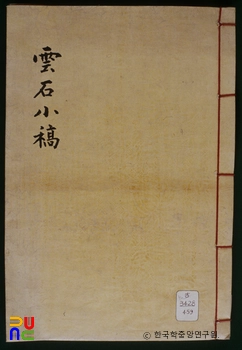 雲石小稿
© 한국학중앙연구원